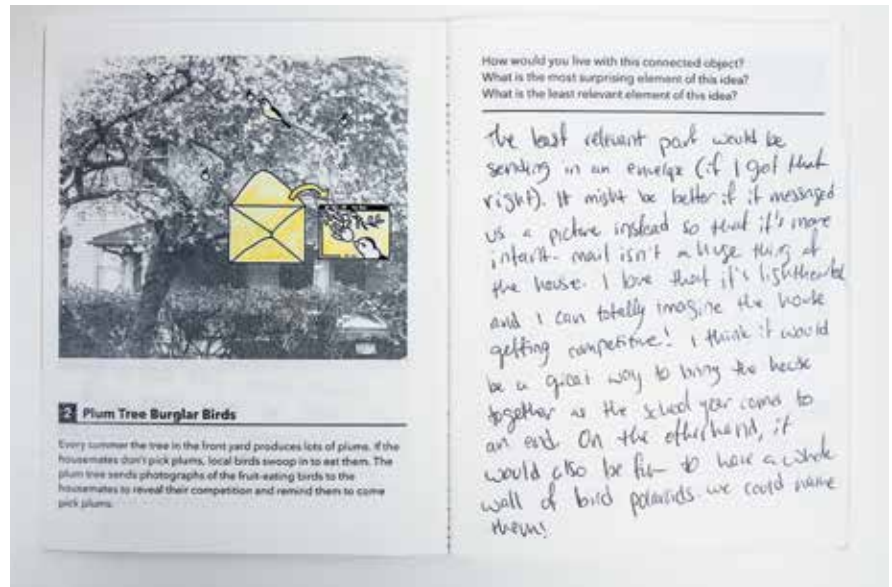 2 Plum Tree Burglar Birds
Every summer the tree in the front yard produces lots of plums. If the
housemates don't pick plums, local birds swoop in to eat them. The
plum tree sends photographs of the fruit-eating birds to the
housemates to reveal their competition and remind them to come
pick plums.
How would you live with this connected object?
What is the most surprising element of this idea?
What is the least relevant element of this idea?
The least relevant part would be
sending in an (if I got that
right). It might be better if it messaged
us a picture instead so that it's more
mail isn't a huge thing at
the house. I love that it's lighthearted
and I can totally imagine the house
getting competitive! I think it would
be a great way to bring the house
together as the school year comes to
an end. On the otherhand, it
would also be fun to have a whole
wall of bird polaroids we could name
them!